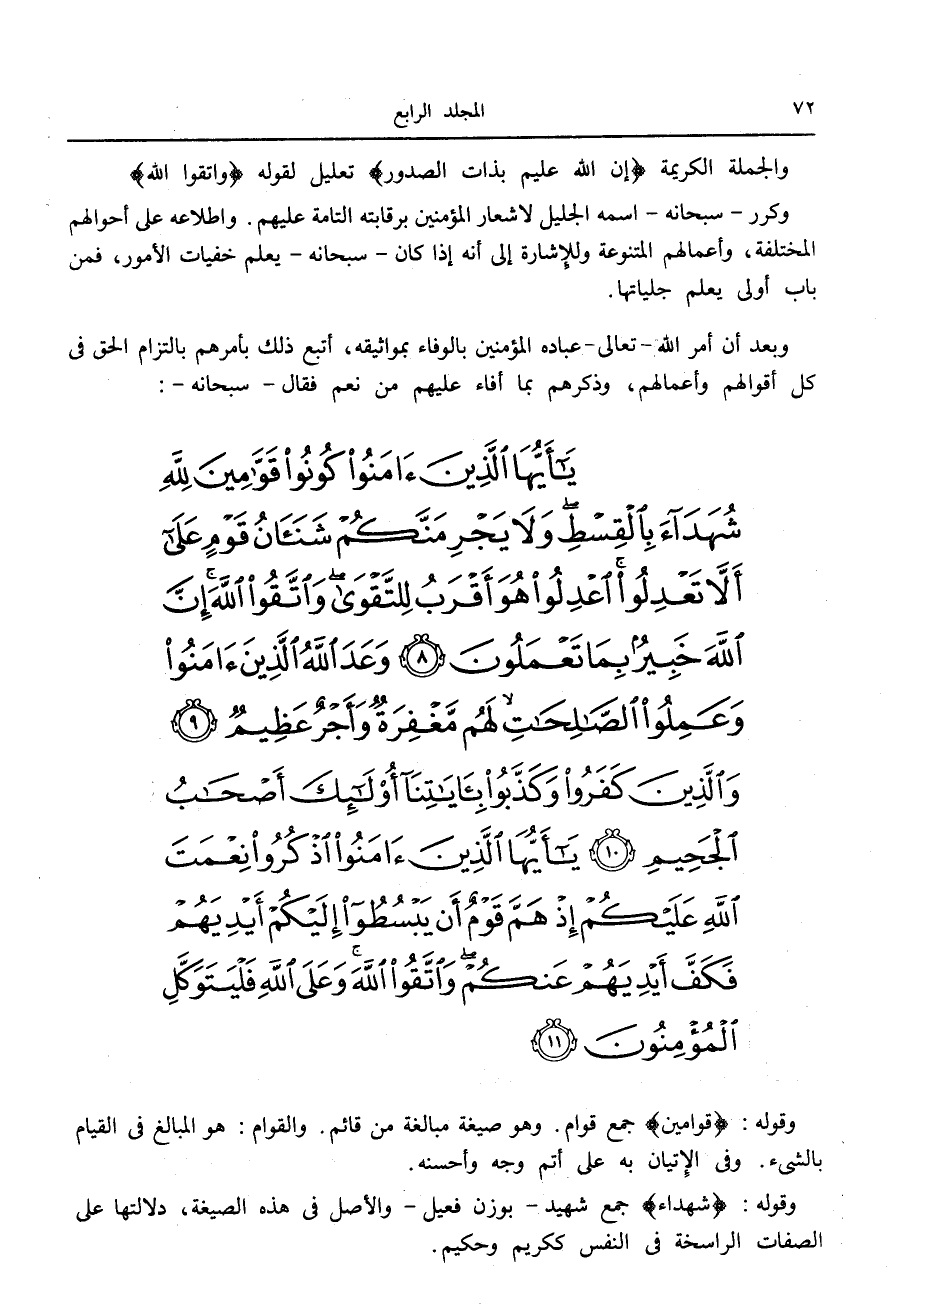 ٧٢ المجلد الرابع
والجملة الكريمة ﴿إن الله عليم بذات الصدور﴾ تعليل لقوله ﴿واتقوا الله﴾
وكرر – سبحانه – اسمه الجليل لاشعار المؤمنين برقابته التامة عليهم. واطلاعه على أحوالهم
المختلفة، وأعمالهم المتنوعة وللإشارة إلى أنه إذا كان – سبحانه – يعلم خفيات الأمور، فمن
باب أولى يعلم جلياتها.
وبعد أن أمر الله – تعالى – عباده المؤمنين بالوفاء بمواثيقه، أتبع ذلك بأمرهم بالتزام الحق فى
كل أقوالهم وأعمالهم، وذكرهم بما أفاء عليهم من نعم فقال – سبحانه – :
يَٰٓأَيُّهَا ٱلَّذِينَ ءَامَنُوا۟ كُونُوا۟ قَوَّٰمِينَ لِلَّهِ
شُهَدَآءَ بِٱلْقِسْطِ ۖ وَلَا يَجْرِمَنَّكُمْ شَنَـَٔانُ قَوْمٍ عَلَىٰٓ
أَلَّا تَعْدِلُوا۟ ۚ ٱعْدِلُوا۟ هُوَ أَقْرَبُ لِلتَّقْوَىٰ ۖ وَٱتَّقُوا۟ ٱللَّهَ ۚ إِنَّ
ٱللَّهَ خَبِيرٌۢ بِمَا تَعْمَلُونَ ٨ وَعَدَ ٱللَّهُ ٱلَّذِينَ ءَامَنُوا۟
وَعَمِلُوا۟ ٱلصَّٰلِحَٰتِ ۙ لَهُم مَّغْفِرَةٌ وَأَجْرٌ عَظِيمٌ ٩
وَٱلَّذِينَ كَفَرُوا۟ وَكَذَّبُوا۟ بِـَٔايَٰتِنَآ أُو۟لَٰٓئِكَ أَصْحَٰبُ
ٱلْجَحِيمِ ١٠ يَٰٓأَيُّهَا ٱلَّذِينَ ءَامَنُوا۟ ٱذْكُرُوا۟ نِعْمَتَ
ٱللَّهِ عَلَيْكُمْ إِذْ هَمَّ قَوْمٌ أَن يَبْسُطُوٓا۟ إِلَيْكُمْ أَيْدِيَهُمْ
فَكَفَّ أَيْدِيَهُمْ عَنكُمْ ۖ وَٱتَّقُوا۟ ٱللَّهَ ۚ وَعَلَى ٱللَّهِ فَلْيَتَوَكَّلِ
ٱلْمُؤْمِنُونَ ١١
وقوله : ﴿قوامين﴾ جمع قوام. وهو صيغة مبالغة من قائم. والقوام : هو المبالغ فى القيام
بالشىء. وفى الإتيان به على أتم وجه وأحسنه.
وقوله : ﴿شهداء﴾ جمع شهيد – بوزن فعيل – والأصل فى هذه الصيغة، دلالتها على
الصفات الراسخة فى النفس ككريم وحكيم.